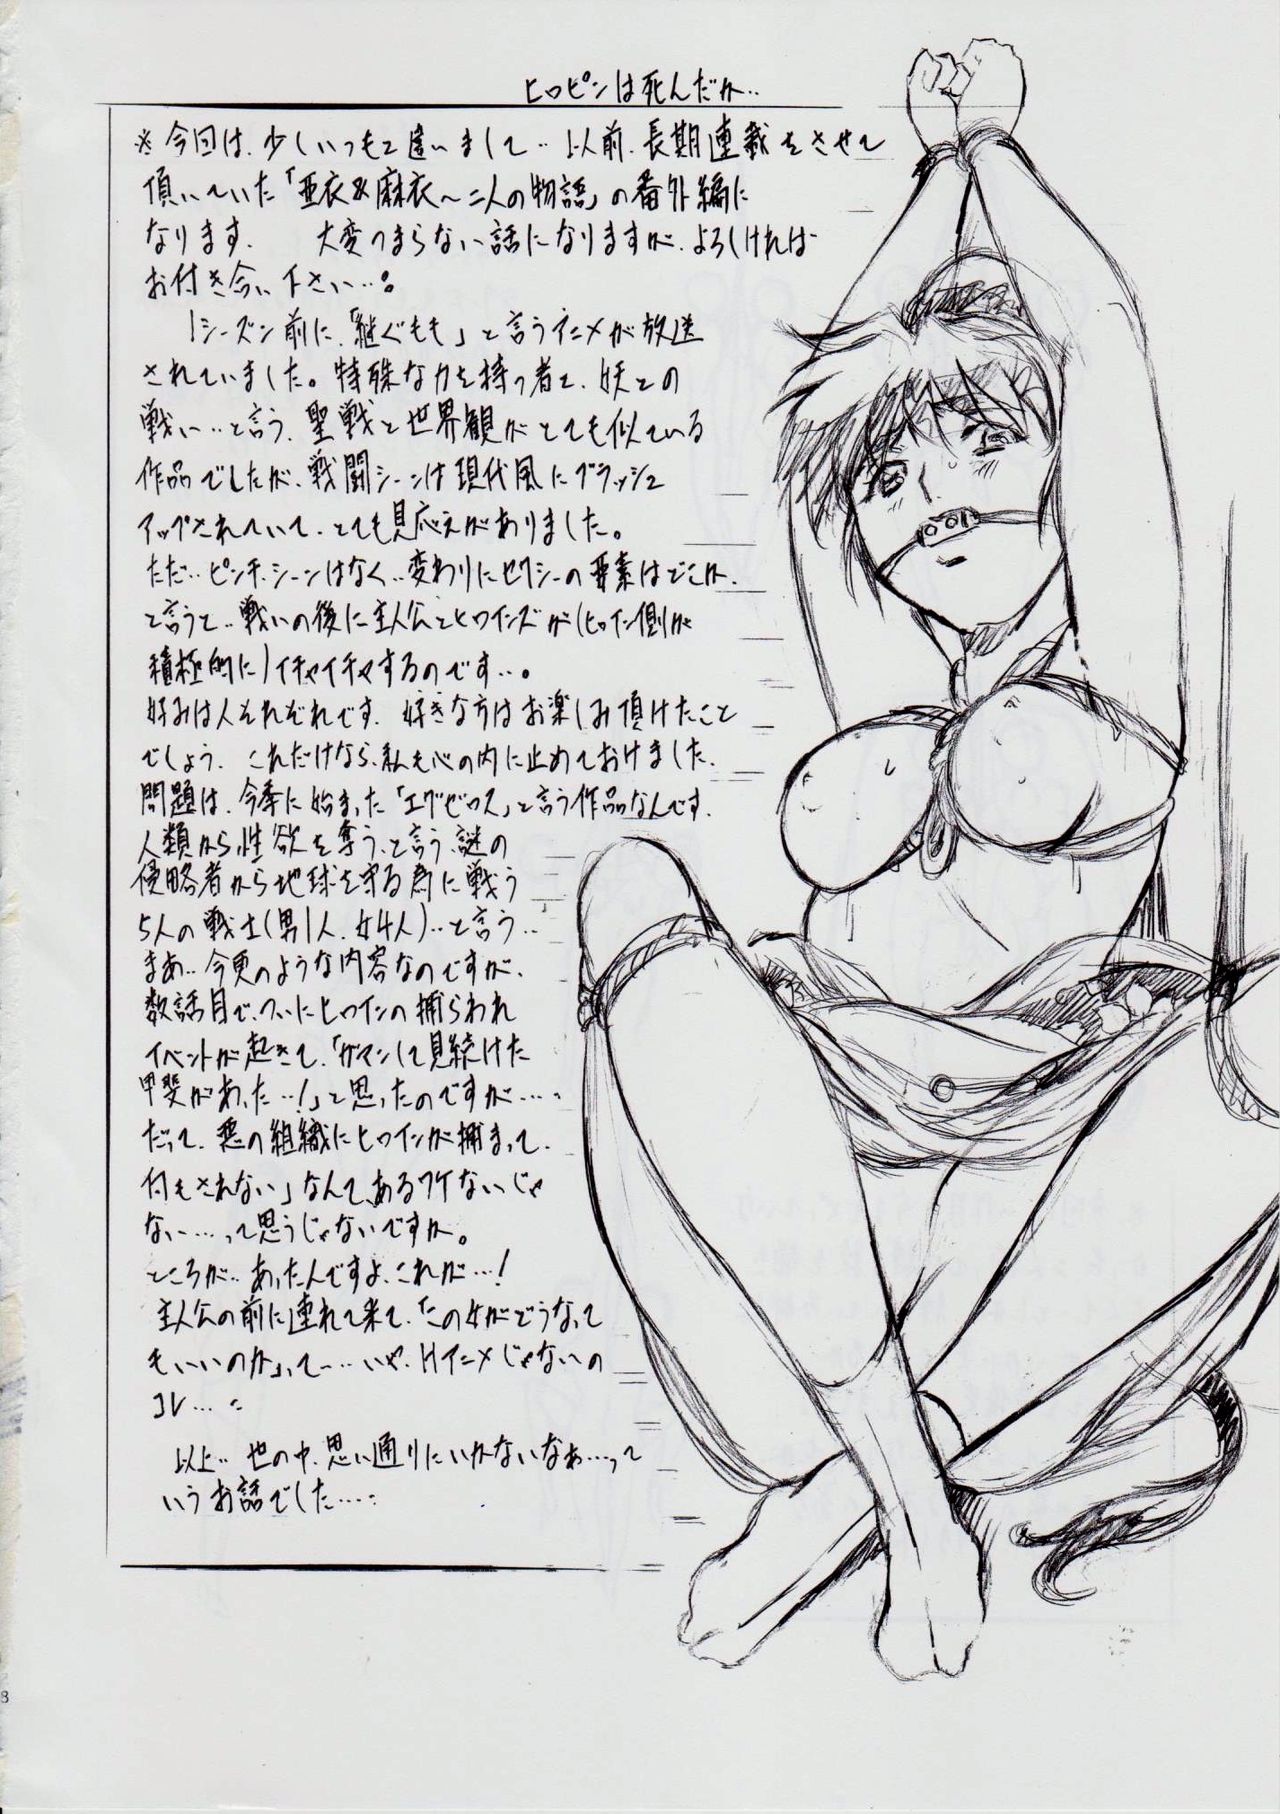 ヒロピンは死んだか‥
※今回は、少しいつもと違いまして‥以前、長期連載をさせて
頂いていた「亜衣&麻衣～二人の物語」の番外編に
なります。 大変つまらない話になりますが、よろしければ
お付き合い下さい…。
1シーズン前に、「継ぐもも」と言うアニメが放送
されていました。特殊な力を持つ者と、妖との
戦い‥と言う、聖戦と世界観がとても似ている
作品でしたが、戦闘シーンは現代風にブラッシュ
アップされていて、とても見応えがありました。
ただ‥ピンチ・シーンはなく‥変わりにセクシーの要素はどこか、
と言うと‥戦いの後に主人公とヒロインズが(ヒロイン側が
積極的に)イチャイチャするのです…。
好みは人それぞれです。好きな方はお楽しみ頂けたこと
でしょう。これだけなら、私も心の内に止めておけました。
問題は、今季に始まった「エグゼロス」と言う作品なんです。
人類から、性欲を奪う、と言う、謎の
侵略者から地球を守る為に戦う
5人の戦士(男1人、女4人)‥と言う‥
まあ‥今更のような内容なのですが、
数話目で、ついにヒロインの捕らわれ
イベントが起きて、「ガマンして見続けた
甲斐があった…!」と思ったのですが……
だって、悪の組織にヒロインが捕まって、
何もされない」なんて、あるワケないじゃ
ない……って思うじゃないですか。
ところが‥あったんですよ、これが…!
主人公の前に連れて来て、「この女がどうなって
もいいのか」って……いや、Hアニメじゃないの
コレ……
以上‥世の中、思い通りにいかないなぁ……って
いうお話でした……
8